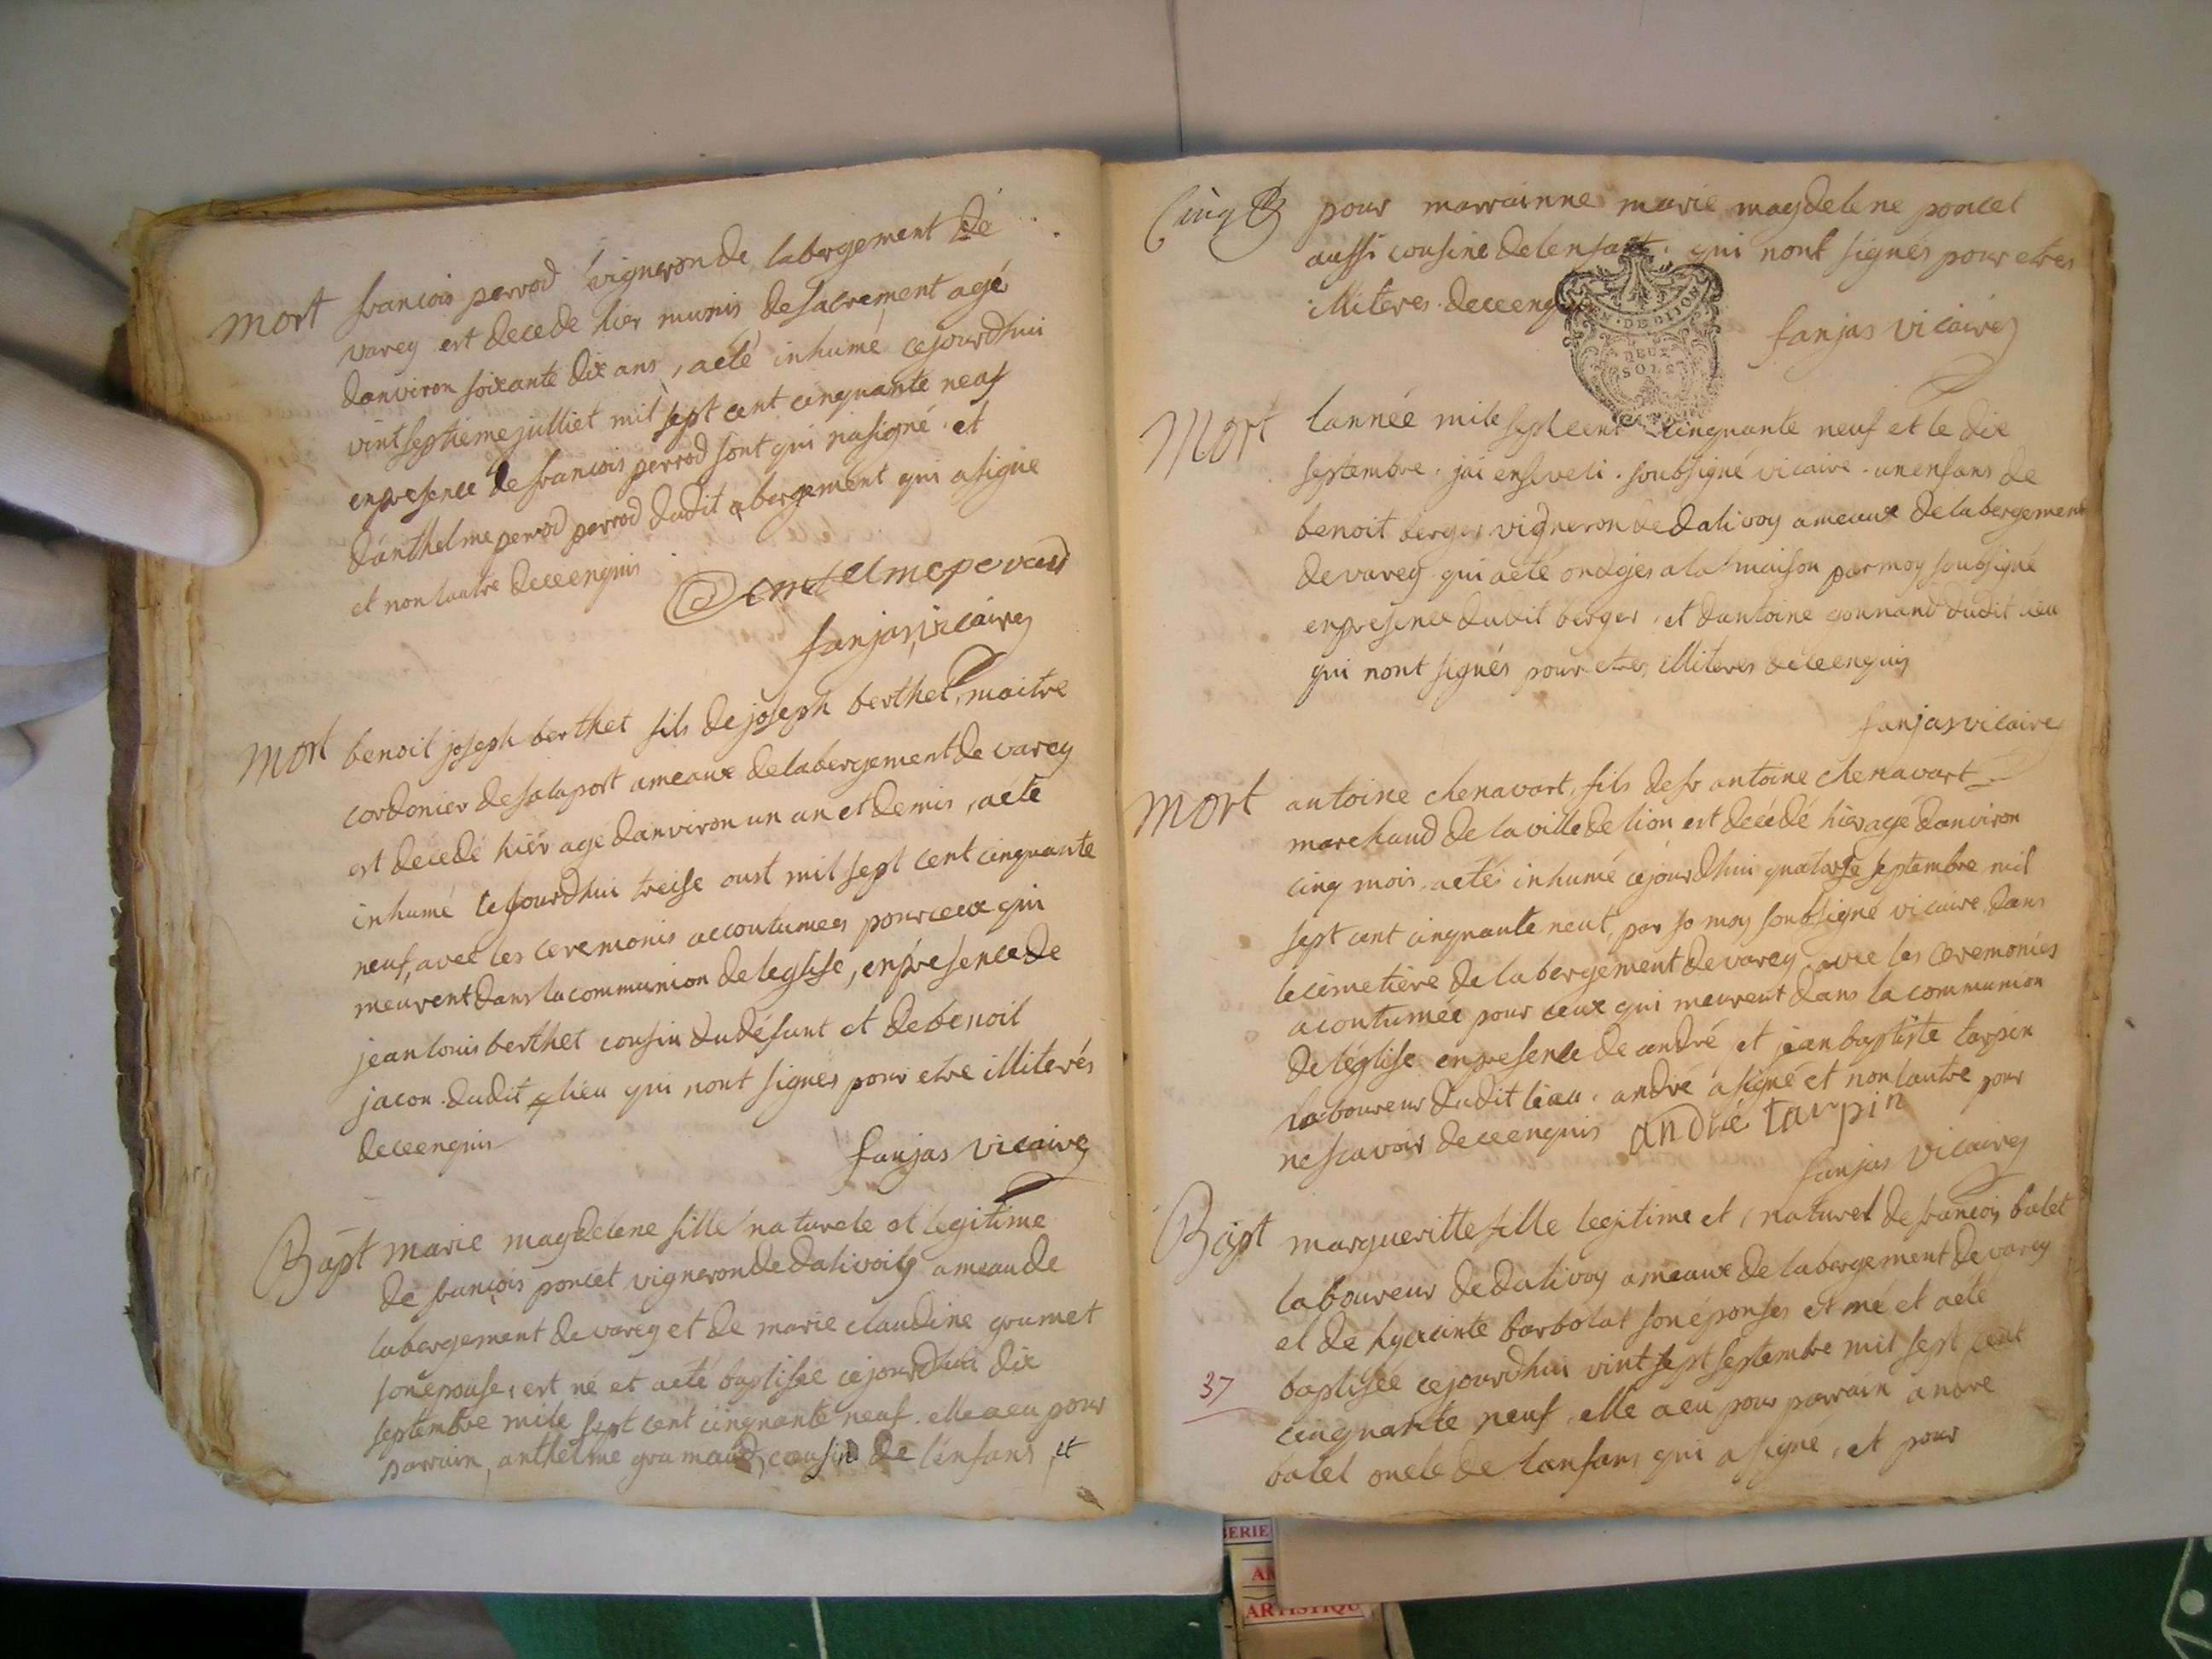 mort francois perrod vigneron de labergement de
varey est decede hier munis de sacrement agé
danviron soixante dix ans, aété inhumé cejourdhui
vint septieme julliet mil sept cent cinquante neaf
enpresence de francois perrod sont qui nasigné et
danthelme perrod perrod dudit abergement qui asigné
et non lautre deceenquis
fanjas vicaire
mort benoit joseph berthet fils de joseph berthet, maitre
cordonier de salaport ameaux delabergement de varey
est decedé hiér agé danviron un an et demis, aété
inhumé cejourdhui treise oust mil sept cent cinquante
neuf, avec les ceremonis accoutumees pour ceux qui
meurent dans la communion de leglise, enpresence de
jean louis berthet cousin dudéfunt et de benoit
jacon dudit lieu qui nont signés pour etre illiterés
deceenquis
fanjas vicaire
Bapt marie magdelene fille naturele et legitime
de francois poncet vigneron de dalivoiy ameau de
labergement de varey et de marie claudine grumet
son epouse, est né et aété baptisée cejourdhui dix
septembre mile sept cent cinquante neuf. elle aeu pour
parrain, anthelme gramaud, cousin de lenfans, et
cinq pour marrainne marie magdelene poncet
aussi cousine de lenfant. qui nont signés pour etres
illiteres. deceenq
EN. DE DIJON
DEUX
SOLS
fanjas vicaire
Mort lannée mile sept cent cinquante neuf et le dix
septembre. jai enseveli. soubsigné vicaire. un enfans de
benoit berger vigneron de dalivoy ameaux de labergement
de varey qui aété ondojes ala maison par moy soubsigné
enpresence dudit berger, et dantoine gonnand dudit lieu
qui nont signés pour etres illiteres deceenquis
fanjas vicaire
mort antoine chenavart, fils de sr antoine chenavart
marchand de la ville de lion est décédé hier agé danviron
cinq mois, aétés inhumé cejourdhui quatorse septembre mil
sept cent cinquante neuf, par so moy soubsigné vicaire dans
le cimetiére de labergement de varey avec les ceremonies
acoutumée pour ceux qui meurent dans la communion
de léglise enpresence de andré et jean baptiste tarpin
laboureur dudit lieu. andre asigné et non lautre pour
ne scavoir deceenquis andré tarpin
fanjas vicaire
Bapt margueritte fille legitime et naturel de francois balet
laboureur de dalivoy ameaux de labergement de varey
et de hyacinte barbolat son éponses et né et aété
37 baptisée cejourdhui vint sept septembre mil sept cent
cinquante neuf, elle aeu pour parrain andre
balet oncle de lanfans qui asigné, et pour